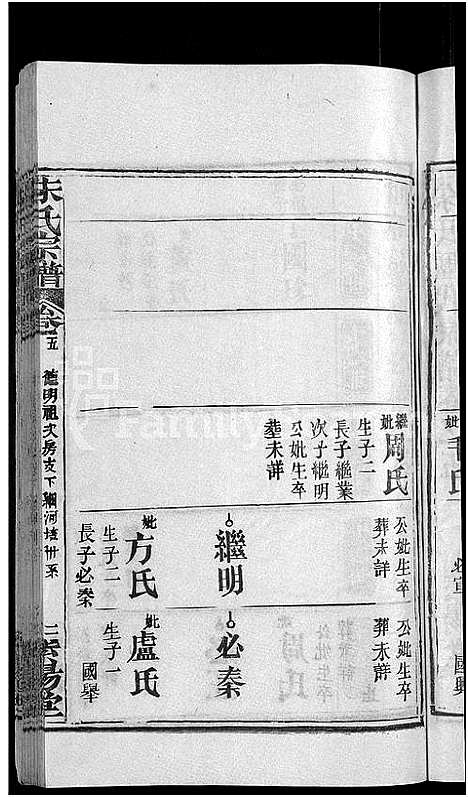 朱氏宗譜
卷
五
德明祖次房支下
二
紫陽堂
繼妣周氏
生子二
長子繼業
次子繼明
公妣生卒
塟未詳
公妣生卒
葬未詳
繼明
妣方氏
生子二
長子必秦
公妣生卒
葬未詳
必秦
妣盧氏
生子一
國舉
妣毛氏
必宣
國典
FamilySearch